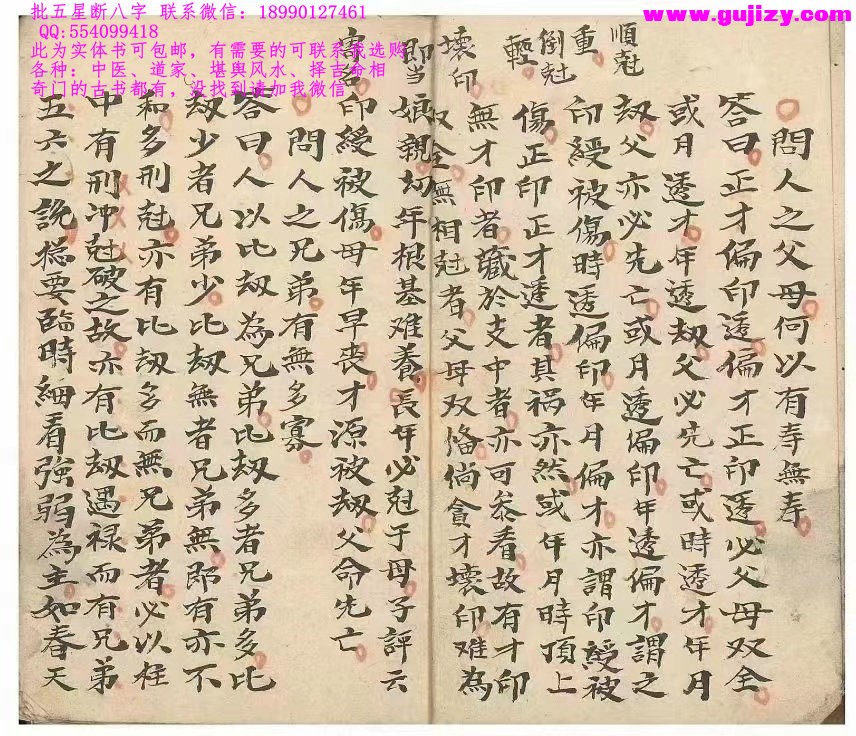 批五星断八字 联系微信：18990127461
QQ:554099418
此为实体书可包邮，有需要的可联系我选购
各种：中医、道家、堪舆风水、择吉命相
奇门的古书都有，没找到请加我微信
www.gujizy.com
問人之父母何以有寿無寿
答曰正才偏印透偏才正印透必父母双全
或月透才年透劫父必先亡或時透才年月
劫父亦必先亡或月透偏印年透偏才謂之
順尅
重
印綬被傷時透偏印年月偏才亦謂印綬被
倒尅
輕
傷正印正才透者其祸亦然或年月時頂上
無才印者藏於支中者亦可参看故有才印
壞印
双全無相尅者父母双俻倘貪才壞印难為
即当
娘親幼年根基难養長年必尅子母子評云
害名
印綬被傷母年早丧才源被劫父命先亡
問人之兄弟有無多寡
答曰人以比劫為兄弟比劫多者兄弟多比
劫少者兄弟少比劫無者兄弟無即有亦不
和多刑尅亦有比劫多而無兄弟者必以柱
中有刑冲尅破之故亦有比劫遇禄而有兄弟
五六之說揔要臨時細看強弱為主如春天